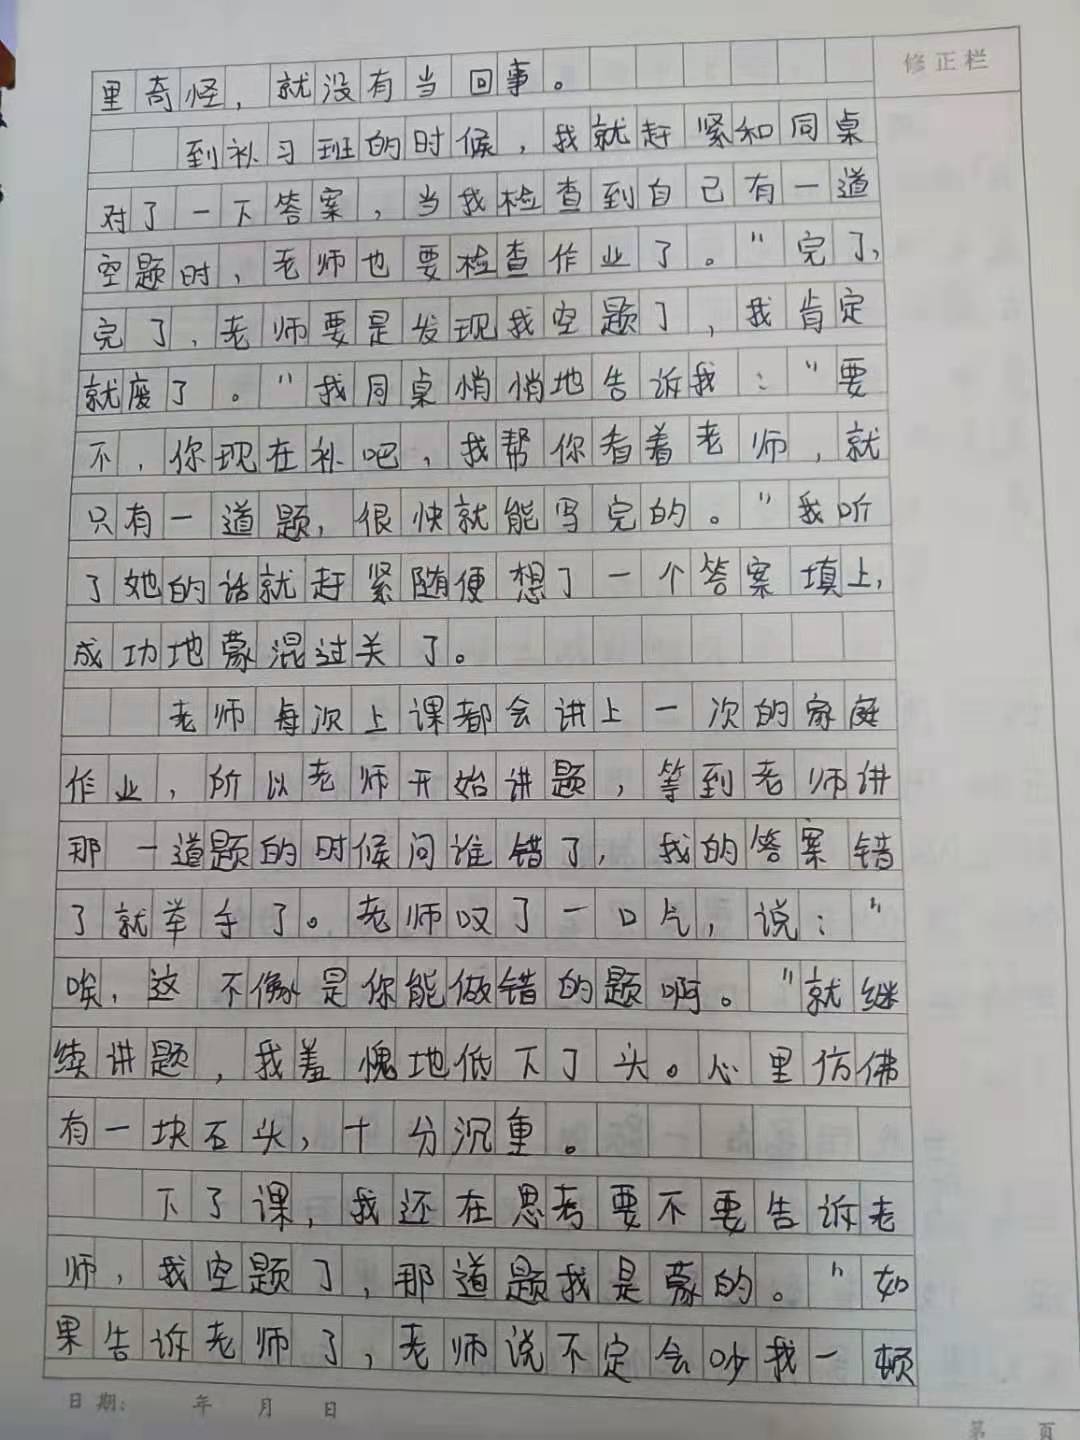 修正栏
里奇怪，就没有当回事。
到补习班的时候，我就赶紧和同桌
对了一下答案，当我检查到自己有一道
空题时，老师也要检查作业了。“完了，
完了，老师要是发现我空题了，我肯定
就废了。”我同桌悄悄地告诉我：“要
不，你现在补吧，我帮你看着老师，就
只有一道题，很快就能写完的。”我听
了她的话就赶紧随便想了一个答案填上，
成功地蒙混过关了。
老师每次上课都会讲上一次的家庭
作业，所以老师开始讲题，等到老师讲
那一道题的时候问谁错了，我的答案错
了就举手了。老师叹了一口气，说：“
唉，这不像是你能做错的题啊。”就继
续讲题，我羞愧地低下了头。心里仿佛
有一块石头，十分沉重。
下了课，我还在思考要不要告诉老
师，我空题了，那道题我是蒙的。“如
果告诉老师了，老师说不定会吵我一顿
日期： 年 月 日
第 页